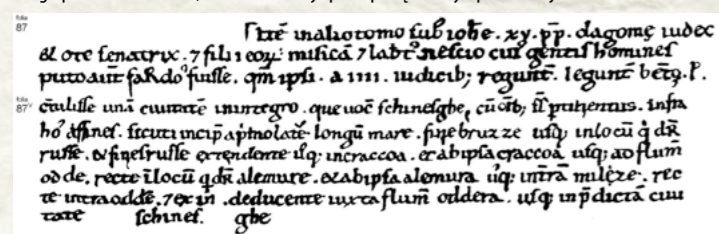 folio
87
Itē in alio tomo sub iohē . xy . pp̄. dagomę iudec
& ote senatrix. 7 filii eoꝝ: misicā 7 lābt̄ nescio cuiꝰ gentis homines
puto aut̄ sardoˢ fuisse. qm̄ ipsi. a iiii. iudicib; regunt̄. legunt̄ bēto. P̄.
folio
87v
c̄tulisse unā ciuitatē in integro. que uoc̄ schinesghe, cū oīb; s̄ ptinentiis. infra
hoˢ affines. sicuti incip̄ a p̄mo latē longū mare. fine bruzze usq; in locū q̄ dr̄
russe. & fines russe extendente usq; in craccoa. et ab ipsa craccoa usq; ad flum̄
odde. recte ī locū q̄ dr̄ alemure. & ab ipsa alemura usq; in t̄rā milczę. rec
te intra odde. 7 exin .deducente iuxta flum̄ oddera. usq; in p̄dictā ciui
tate schines. ghe